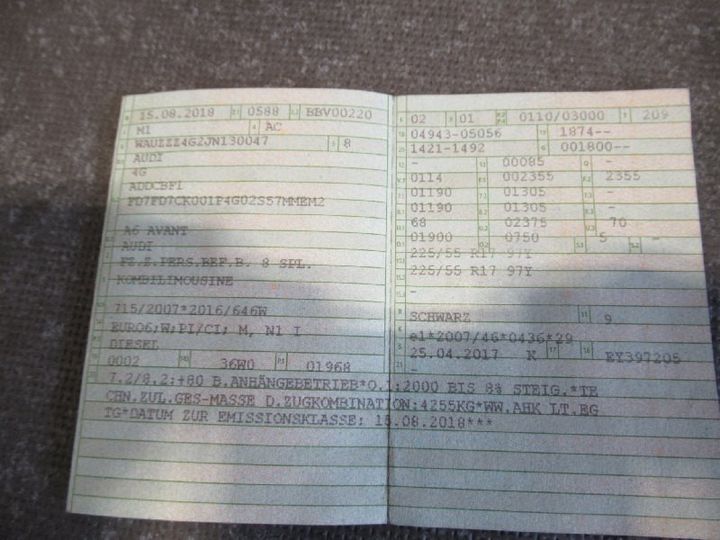 15.08.2018 0588 BBV00220
M1 AC
WAUZZZ4G2JN130047 8
AUDI
4G
ADDCBF1
FD7FD7CK001P4G02S57MMEM2
A6 AVANT
AUDI
FZ.Z.PERS.BEF.B. 8 SPL.
KOMBILIMOUSINE
715/2007*2016/646W
EURO6;W;PI/CI; M, N1 I
DIESEL
0002 36W0 01968
02 01 0110/03000 209
04943-05056 1874--
1421-1492 001800--
- 00085 -
0114 002355 2355
01190 01305 -
01190 01305 -
68 02375 70
01900 0750 5 -
225/55 R17 97Y
225/55 R17 97Y
-
SCHWARZ 9
e1*2007/46*0436*29
25.04.2017 K EY397205
-
7.2/8.2:+80 B.ANHÄNGEBETRIEB*O.1:2000 BIS 8% STEIG.*TE
CHN.ZUL.GES-MASSE D.ZUGKOMBINATION:4255KG*WW.AHK LT.EG
TG*DATUM ZUR EMISSIONSKLASSE: 15.08.2018***